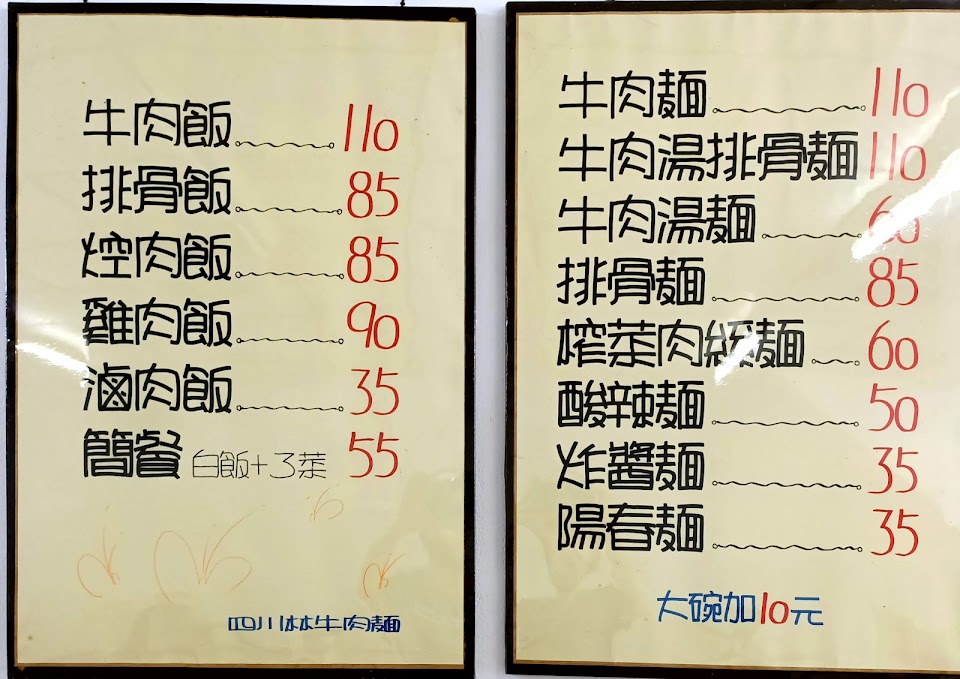 牛肉飯 110
排骨飯 85
焢肉飯 85
雞肉飯 90
滷肉飯 35
簡餐 白飯+3菜 55
四川林牛肉麵
牛肉麵 110
牛肉湯排骨麵 110
牛肉湯麵 60
排骨麵 85
榨菜肉絲麵 60
酸辣麵 50
炸醬麵 35
陽春麵 35
大碗加10元